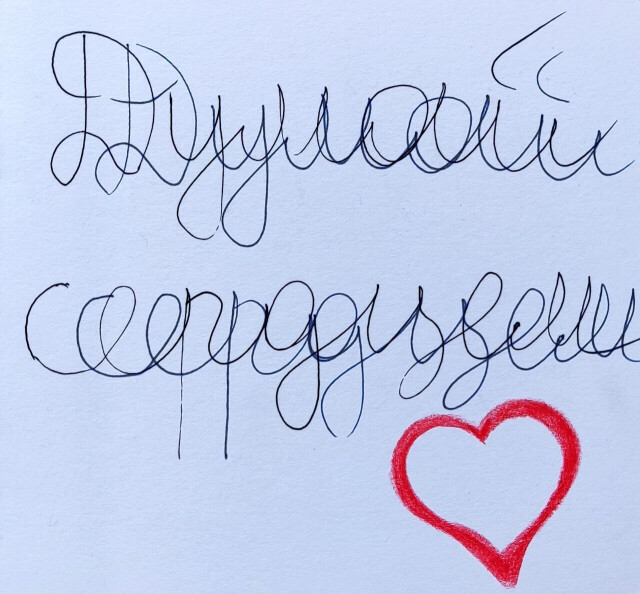 Думай
сердцем